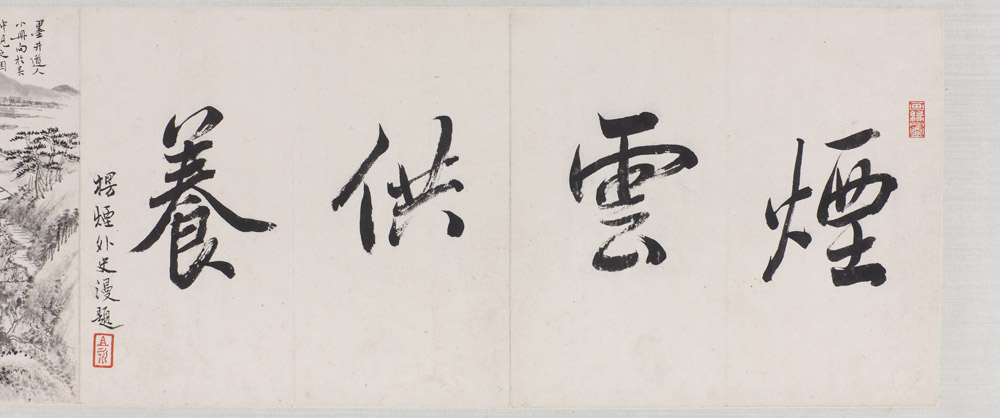 煙雲供養
楞煙外史漫題
墨井道人
小冊向於吳